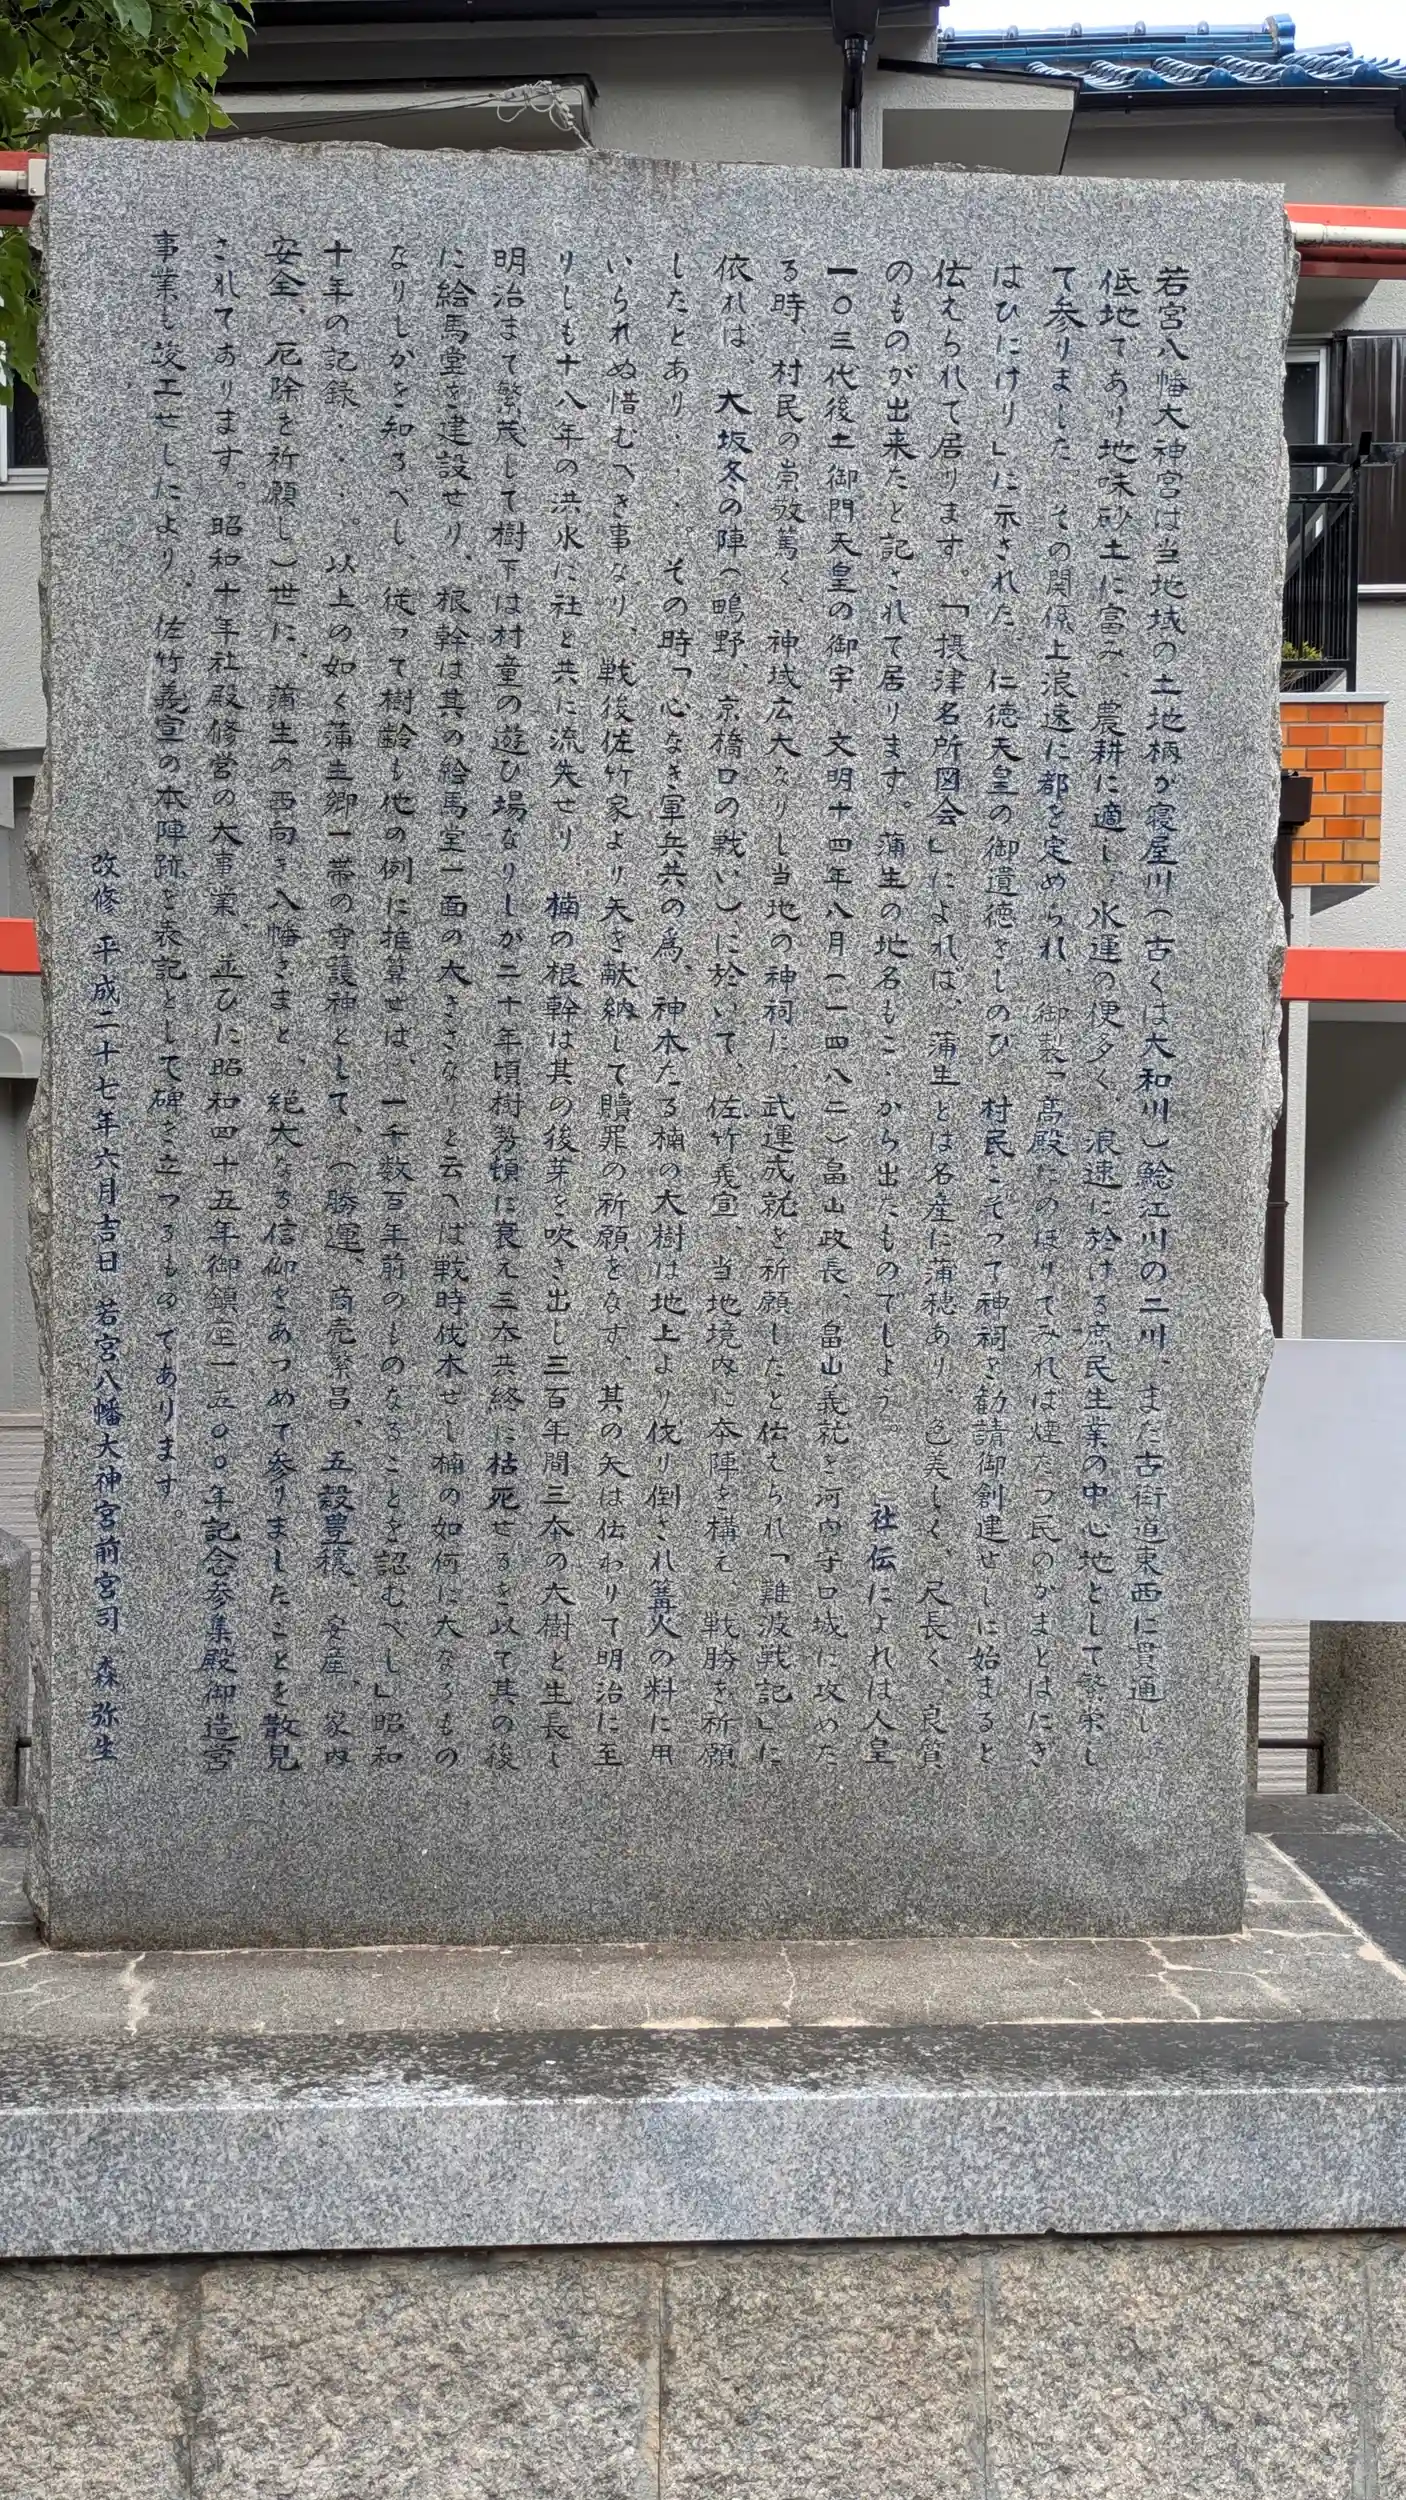 若宮八幡大神宮は当地域の土地柄が寝屋川(古くは大和川)鯰江川の二川、また古街道東西に貫通し
低地であり地味砂土に富み、農耕に適し、水運の便多く、浪速に於ける庶民生業の中心地として繁栄し
て参りました。その関係上浪速に都を定められ、御製「高殿にのぼりてみれば煙たつ民のかまどはにぎ
はひにけり」に示された、仁徳天皇の御遺徳をしのび、村民こぞって神祠を勧請御創建せしに始まると
伝えられて居ります。「摂津名所図会」によれば、蒲生とは名産に蒲穂あり、色美しく、尺長く、良質
のものが出来たと記されて居ります。蒲生の地名もこゝから出たものでしょう。 社伝によれば人皇
一〇三代後土御門天皇の御宇、文明十四年八月(一四八二)畠山政長、畠山義就を河内守口城に攻めた
る時、村民の崇敬篤く、神域広大なりし当地の神祠に、武運成就を祈願したと伝えられ「難波戦記」に
依れば、大坂冬の陣(鴫野、京橋口の戦い)に於いて、佐竹義宣、当地境内に本陣を構え、戦勝を祈願
したとあり・・・。その時「心なき軍兵共の為、神木たる楠の大樹は地上より伐り倒され篝火の料に用
いられぬ惜むべき事なり、戦後佐竹家より矢を献納して贖罪の祈願をなす、其の矢は伝わりて明治に至
りしも十八年の洪水に社と共に流失せり、楠の根幹は其の後芽を吹き出し三百年間三本の大樹と生長し
明治まで繁茂して樹下は村童の遊び場なりしが二十年頃樹勢頓に衰え三本共終に枯死せるを以て其の後
に絵馬堂を建設せり、根幹は其の絵馬堂一面の大きさなりと云へば戦時伐木せし楠の如何に大なるもの
なりしかを知るべし、従って樹齢も他の例に推算せば、一千数百年前のものなることを認むべし」昭和
十年の記録・・・。以上の如く蒲生郷一帯の守護神として、(勝運、商売繁昌、五穀豊穣、安産、家内
安全、厄除を祈願し)世に、蒲生の西向き八幡さまと、絶大なる信仰をあつめて参りましたことを散見
されております。昭和十年社殿修営の大事業、並びに昭和四十五年御鎮座一五〇〇年記念参集殿御造営
事業も竣工せしたより、佐竹義宣の本陣跡を表記として碑を立つるものであります。
改修 平成二十七年六月吉日 若宮八幡大神宮前宮司 森 弥生